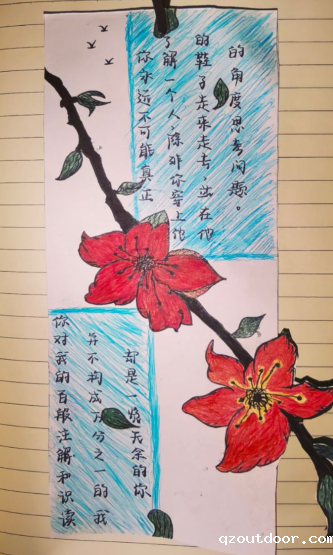 你永远不可能真正
了解一个人,除非你穿上他
的鞋子走来走去,站在他
的角度思考问题。
你对我的百般注解和识读
并不构成万分之一的我
却是一览无余的你
qzoutdoor.com